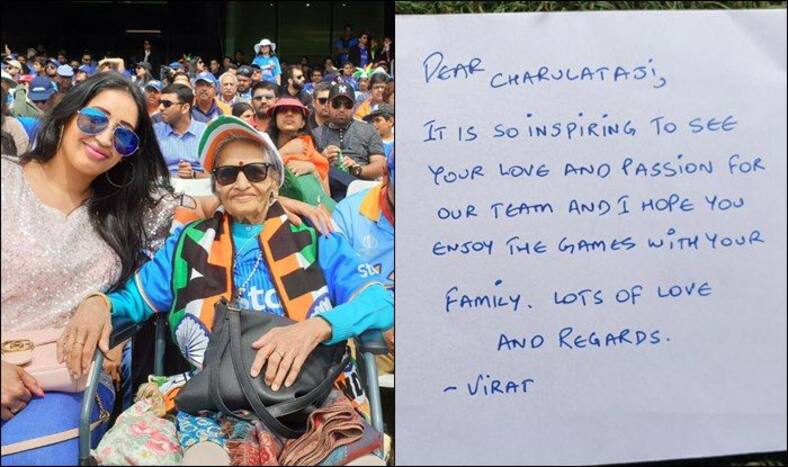 DEAR CHARULATAJi,
IT IS SO INSPIRING TO SEE
YOUR LOVE AND PASSION FOR
OUR TEAM AND I HOPE YOU
ENJOY THE GAMES WITH YOUR
FAMILY. LOTS OF LOVE
AND REGARDS.
- VIRAT